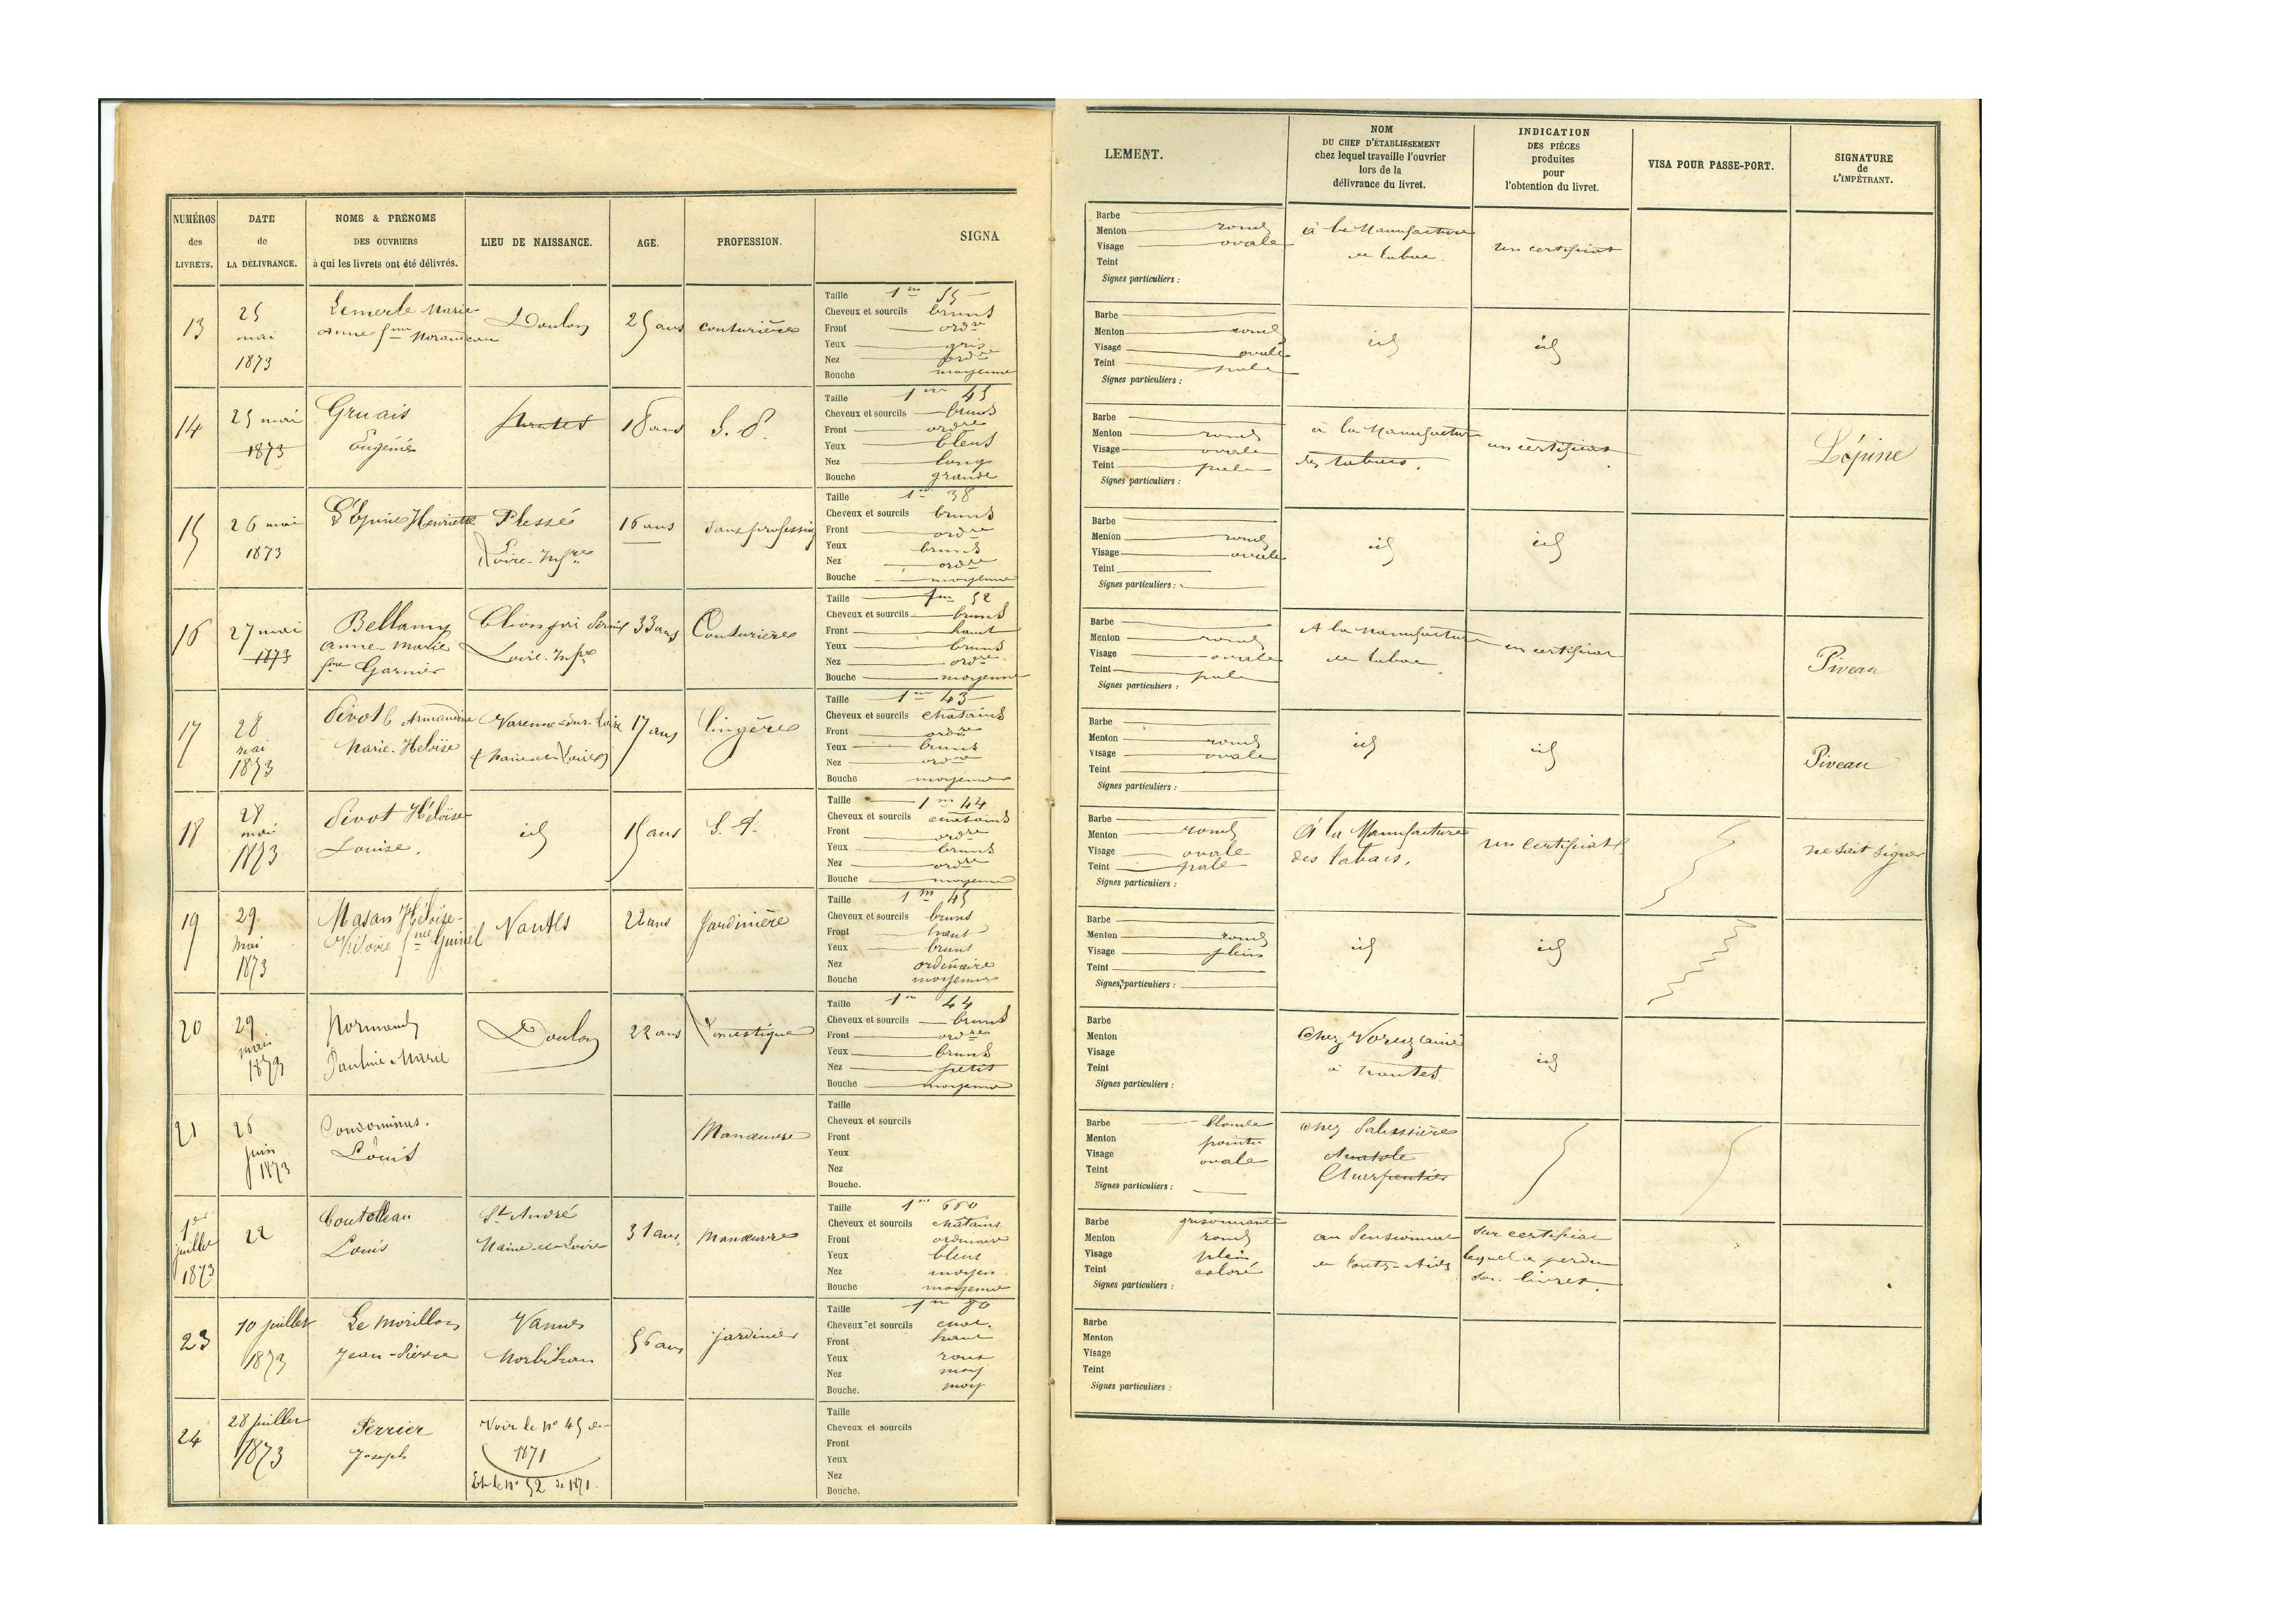 NUMÉROS
des
LIVRETS.
DATE
de
LA DÉLIVRANCE.
NOMS & PRÉNOMS
DES OUVRIERS
à qui les livrets ont été délivrés.
LIEU DE NAISSANCE.
AGE.
PROFESSION.
SIGNA
13
25
mai
1873
Lemerle Marie
Anne fme Morandeau
Doulon
25 ans
couturière
Taille 1m 55
Cheveux et sourcils bruns
Front ordre
Yeux gris
Nez ordre
Bouche moyenne
14
25 mai
1873
Gruais
Eugénie
Nantes
18 ans
S. P.
Taille 1m 45
Cheveux et sourcils bruns
Front ordre
Yeux bleus
Nez long
Bouche grande
15
26 mai
1873
L'Epine Henriette
Plessé
Loire-Infre
16 ans
sans profession
Taille 1m 38
Cheveux et sourcils bruns
Front ordre
Yeux bruns
Nez ordre
Bouche moyenne
16
27 mai
1873
Bellamy
Anne-Marie
fme Garnier
Loire-Infre
33 ans
Couturière
Taille 1m 52
Cheveux et sourcils bruns
Front haut
Yeux bruns
Nez ordre
Bouche moyenne
17
28
mai
1873
Pivot Armandine
Marie-Heloïse
Varenne-sur-Loire
(Maine et Loire)
17 ans
lingère
Taille 1m 43
Cheveux et sourcils chatains
Front ordre
Yeux bruns
Nez ordre
Bouche moyenne
18
28
mai
1873
Pivot Héloïse
Louise.
id
15 ans
S. P.
Taille 1m 44
Cheveux et sourcils chatains
Front ordre
Yeux bruns
Nez ordre
Bouche moyenne
19
29
mai
1873
Masan Héloïse-
Victoire fme Guinel
Nantes
22 ans
Jardinière
Taille 1m 45
Cheveux et sourcils bruns
Front haut
Yeux bruns
Nez ordinaire
Bouche moyenne
20
29
mai
1873
Normand
Pauline-Marie
Doulon
22 ans
Domestique
Taille 1m 44
Cheveux et sourcils bruns
Front ordre
Yeux bruns
Nez petit
Bouche moyenne
21
26
juin
1873
Condominas.
Louis
Manœuvre
Taille
Cheveux et sourcils
Front
Yeux
Nez
Bouche.
1er
juillet
1873
22
Coutelleau
Louis
St André
Maine-et-Loire
31 ans
Manœuvre
Taille 1m 660
Cheveux et sourcils chatains
Front ordinaire
Yeux bleus
Nez moyen
Bouche moyenne
23
10 juillet
1873
Le Morillon
Jean-Pierre
Vannes
Morbihan
56 ans
jardinier
Taille 1m 80
Cheveux et sourcils chat.
Front haut
Yeux roux
Nez moy
Bouche. moy
24
28 juillet
1873
Perrier
Joseph
Voir le No 45 de
1871
Et le No 52 de 1871.
Taille
Cheveux et sourcils
Front
Yeux
Nez
Bouche.
LEMENT.
NOM
DU CHEF D'ÉTABLISSEMENT
chez lequel travaille l'ouvrier
lors de la
délivrance du livret.
INDICATION
DES PIÈCES
produites
pour
l'obtention du livret.
VISA POUR PASSE-PORT.
SIGNATURE
de
L'IMPÉTRANT.
Barbe
Menton rond
Visage ovale
Teint
Signes particuliers :
à la Manufacture
de tabac.
un certificat
Barbe
Menton rond
Visage ovale
Teint pale
Signes particuliers :
id
id
Barbe
Menton rond
Visage ovale
Teint pale
Signes particuliers :
à la Manufacture
des tabacs.
un certificat
Lépine
Barbe
Menton rond
Visage ovale
Teint
Signes particuliers :
id
id
Barbe
Menton rond
Visage ovale
Teint pale
Signes particuliers :
A la Manufacture
de tabac
un certificat
Piveau
Barbe
Menton rond
Visage ovale
Teint
Signes particuliers :
id
id
Piveau
Barbe
Menton rond
Visage ovale
Teint pale
Signes particuliers :
A la Manufacture
des tabacs.
un certificat
ne sait signer
Barbe
Menton rond
Visage plein
Teint
Signes particuliers :
id
id
Barbe
Menton
Visage
Teint
Signes particuliers :
Chez Voruz ainé
à Nantes
id
Barbe blonde
Menton pointu
Visage ovale
Teint
Signes particuliers :
chez
Anatole
Charpentier
Barbe grisonnante
Menton rond
Visage plein
Teint coloré
Signes particuliers :
au Pensionnat
de Toutes-Aides
sur certificat
lequel a perdu
son livret.
Barbe
Menton
Visage
Teint
Signes particuliers :